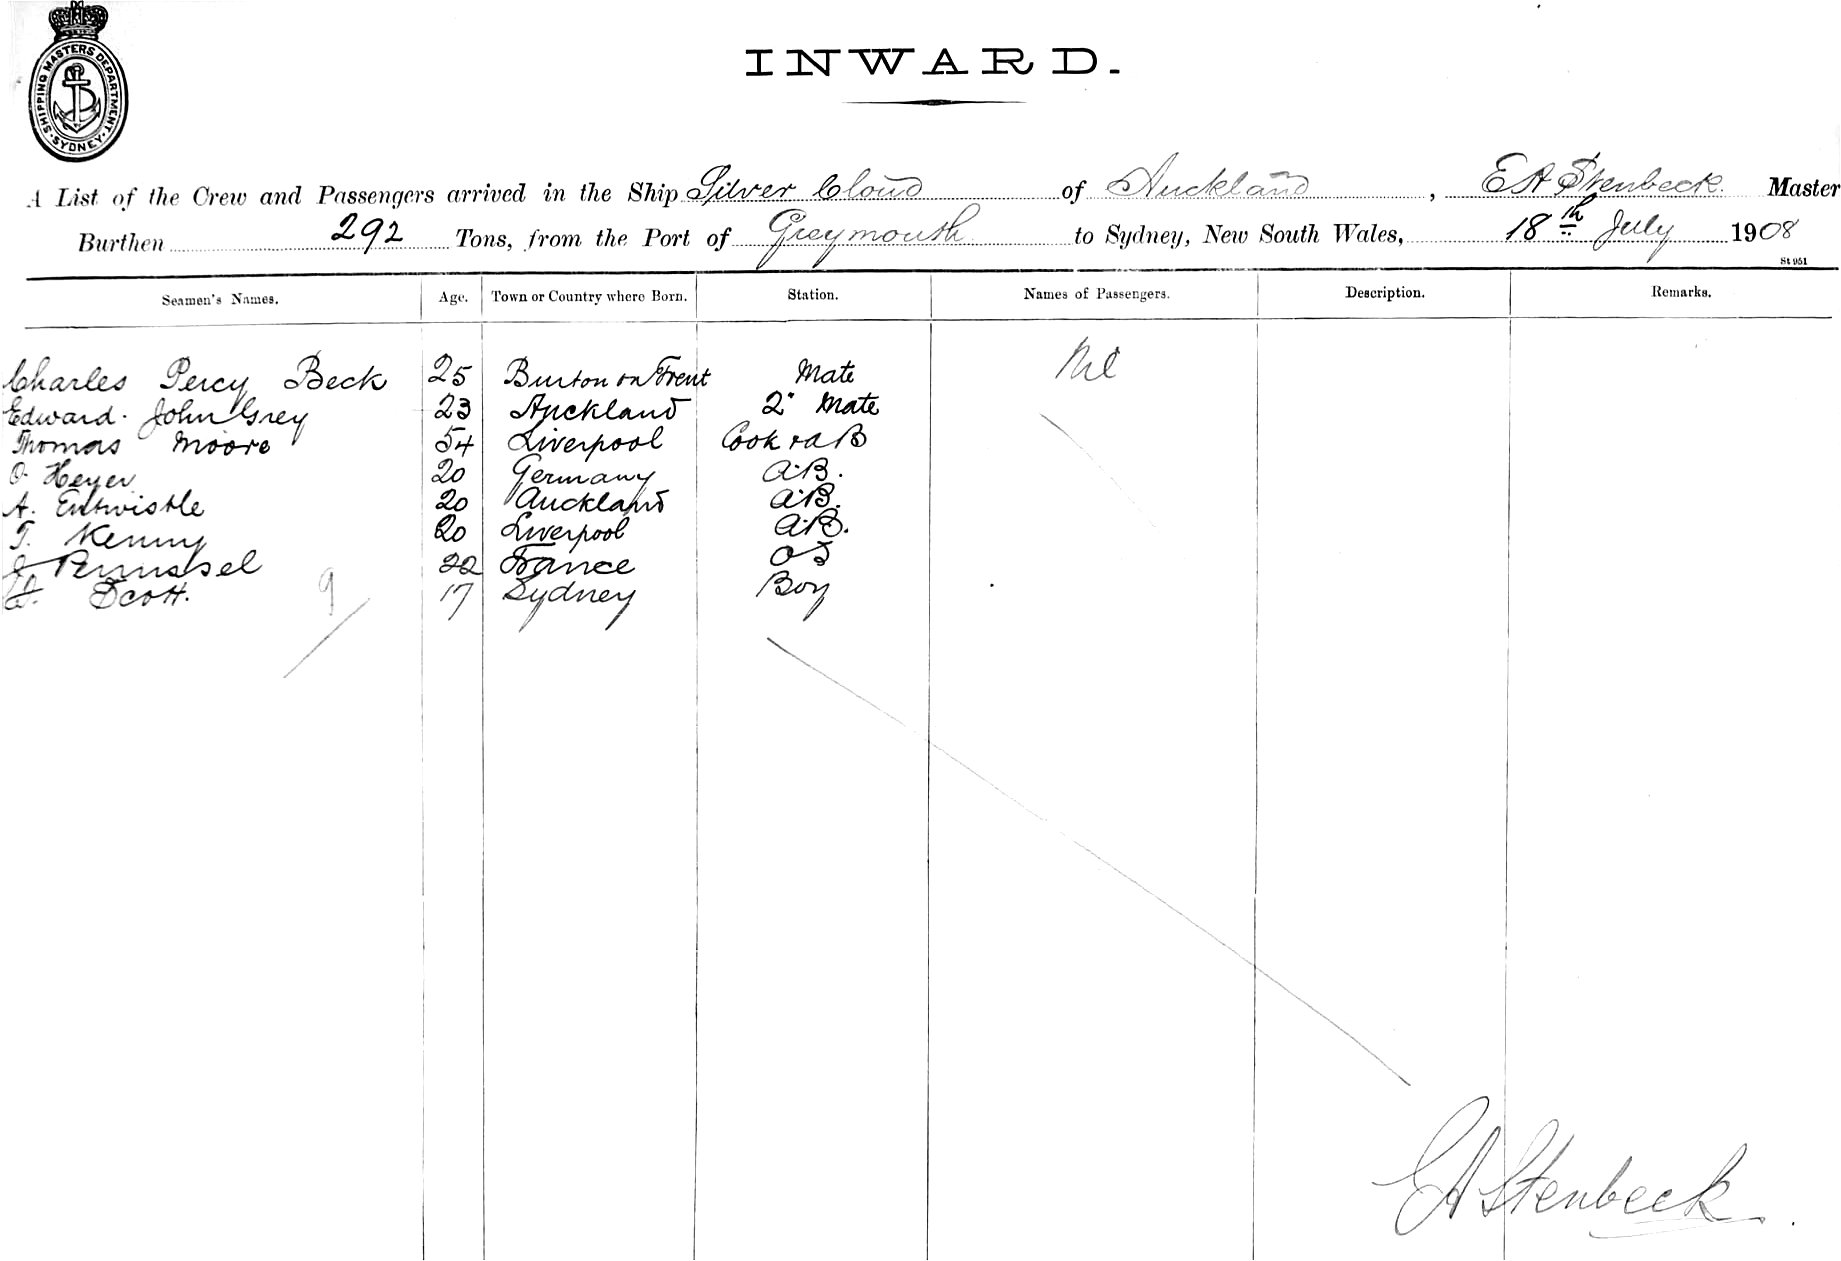 SHIPPING MASTERS DEPARTMENT · SYDNEY ·
INWARD.
A List of the Crew and Passengers arrived in the Ship Silver Cloud of Auckland, E A Stenbeck. Master
Burthen 292 Tons, from the Port of Greymouth to Sydney, New South Wales, 18th July 1908
St 951
Seamen's Names. Age. Town or Country where Born. Station. Names of Passengers. Description. Remarks.
Charles Percy Beck 25 Burton on Trent Mate Nil
Edward John Grey 23 Auckland 2" Mate
Thomas Moore 54 Liverpool Cook & AB
O Heyer 20 Germany A.B.
A. Entwistle 20 Auckland A.B.
T. Kenny 20 Liverpool A.B.
J 22 France OS
Scott. 17 Sydney Boy
9
E A Stenbeck